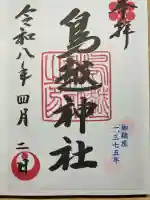 奉拝
鳥越神社
御鎮座
一三七五年
令和八年四月二日